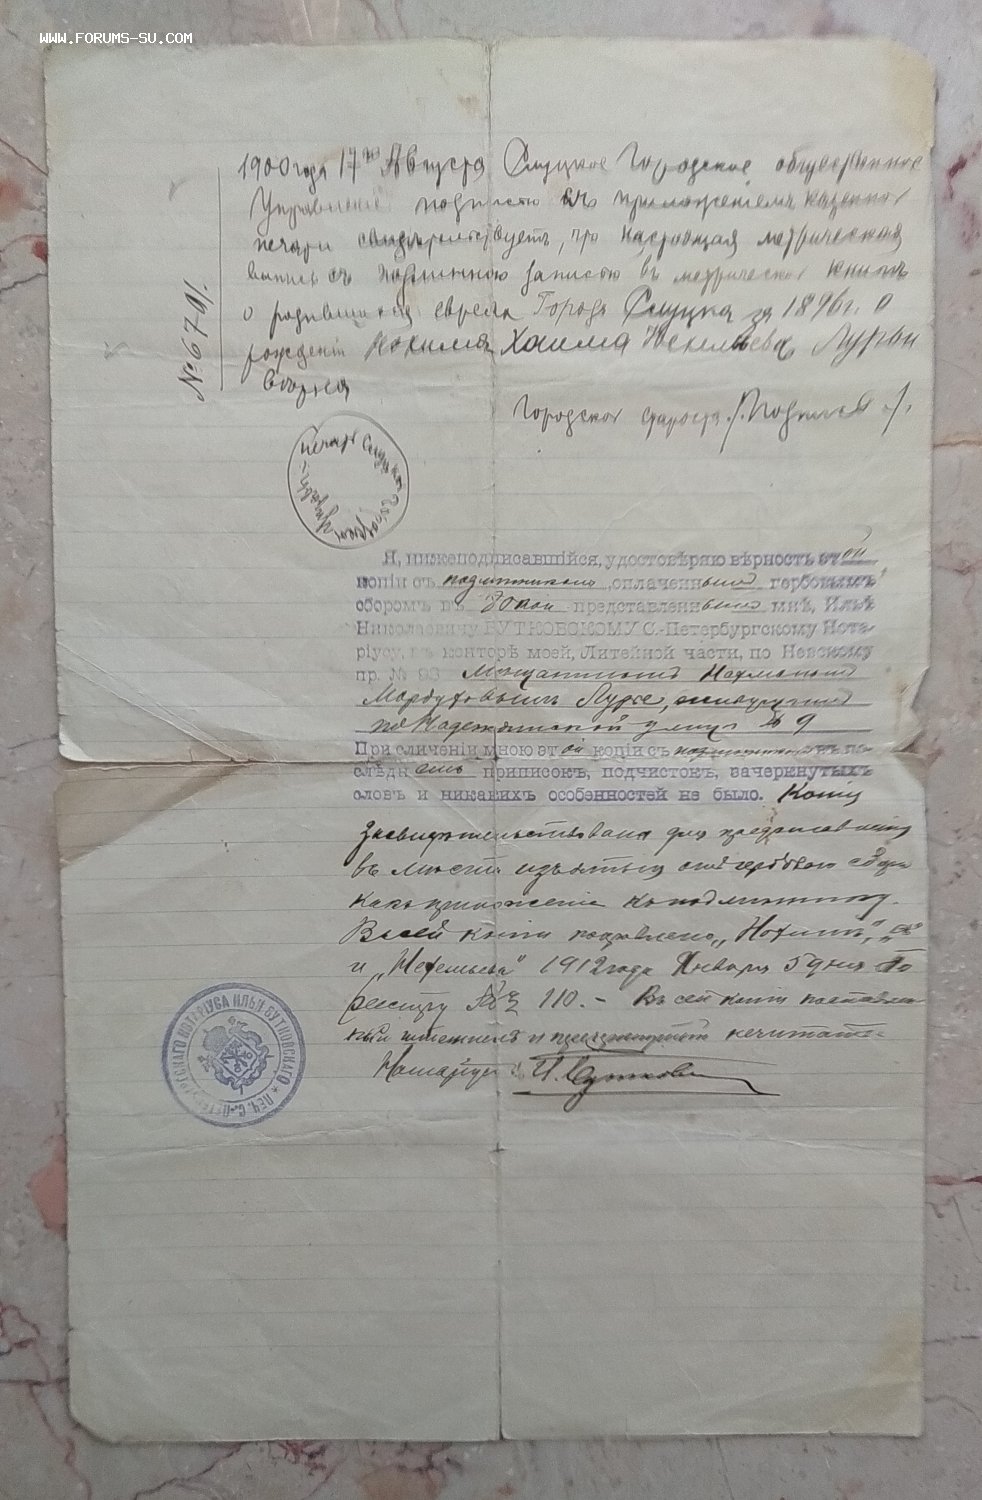 WWW.FORUMS-SU.COM
1900 года 17го Августа Слуцкое Городское общественное
Управление подписью съ приложеніемъ казенной
печати свидѣтельствуетъ, что настоящая метрическая
выпись съ подлинною записью въ метрической книгѣ
о родившихся евреяхъ Города Слуцка за 1896 г. о
рожденіи Нохима Хаима Лурьи
вѣрна
№ 6701.
Городской староста /Подпись/.
печать
Я, нижеподписавшійся, удостовѣряю вѣрность этой
копіи съ подлинникомъ, оплаченнымъ гербовымъ
сборомъ въ представленнымъ мнѣ, Ильѣ
Николаевичу БУТКОВСКОМУ С.-Петербургскому Нота-
ріусу, въ конторѣ моей, Литейной части, по Невскому
пр. № 93 Мѣщаниномъ
Мордуховымъ Лурье, живущимъ
по Надеждинской улицѣ № 9
При сличеніи мною этой копіи съ подлинникомъ въ по-
слѣднемъ приписокъ, подчистокъ, зачеркнутыхъ
словъ и никакихъ особенностей не было. Копія
засвидѣтельствована для представленія
въ
какъ приложеніе къ подлиннику.
В сей копіи поправлено „Нохимъ“,
и 1912 года Января 5 дня По
реестру № 110. – Въ сей копіи
не читать.
Нотаріусъ И. Бутковскій
ПЕЧ. С.-ПЕТЕРБУРГСКАГО НОТАРІУСА ИЛЬИ БУТКОВСКАГО